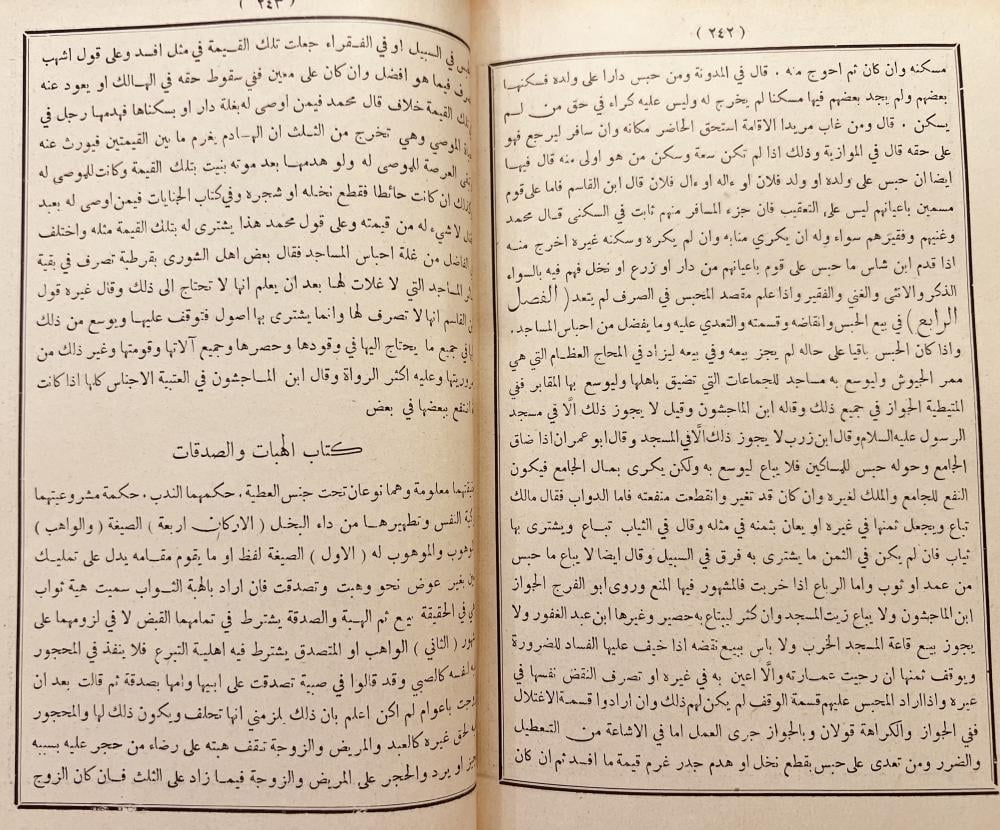 ( ٢٤٢ )
مسكنه وان كان ثم احوج منه . قال في المدونة ومن حبس دارا على ولده فسكنها
بعضهم ولم يجد بعضهم فيها مسكنا لم يخرج له وليس عليه كراء في حق من لم
يسكن . قال ومن غاب مريدا الاقامة استحق الحاضر مكانه وان سافر ليرجع فهو
على حقه قال في الموازية وذلك اذا لم تكن سعة وسكن من هو اولى منه قال فيها
ايضا ان حبس على ولده او ولد فلان او ءاله او ءال فلان قال ابن القاسم فاما على قوم
مسمين باعيانهم ليس على التعقيب فان جزء المسافر منهم ثابت في السكنى قال محمد
وغنيهم وفقيرهم سواء وله ان يكري منابه وان لم يكره وسكنه غيره اخرج منه
اذا قدم ابن شاس ما حبس على قوم باعيانهم من دار او زرع او نخل فهم فيه بالسواء
الذكر والانثى والغني والفقير واذا علم مقصد المحبس في الصرف لم يتعد ( الفصل
الرابع ) في بيع الحبس وانقاضه وقسمته والتعدي عليه وما يفضل من احباس المساجد .
واذا كان الحبس باقيا على حاله لم يجز بيعه وفي بيعه ليزاد في المحاج العظام التي هي
ممر الجيوش وليوسع به مساجد للجماعات التي تضيق باهلها وليوسع بها المقابر ففي
المتيطية الجواز في جميع ذلك وقاله ابن الماجشون وقيل لا يجوز ذلك الّا في مسجد
الرسول عليه السلام وقال ابن زرب لا يجوز ذلك الّا في المسجد وقال ابو عمران اذا ضاق
الجامع وحوله حبس للمساكين فلا يباع ليوسع به ولكن يكرى بمال الجامع فيكون
النفع للجامع والملك لغيره وان كان قد تغير وانقطعت منفعته فاما الدواب فقال مالك
تباع ويجعل ثمنها في غيره او يعان بثمنه في مثله وقال في الثياب تباع ويشترى بها
ثياب فان لم يكن في الثمن ما يشترى به فرق في السبيل وقال ايضا لا يباع ما حبس
من عمد او ثوب واما الرباع اذا خربت فالمشهور فيها المنع وروى ابو الفرج الجواز
ابن الماجشون ولا يباع زيت المسجد وان كثر ليبتاع به حصير وغيرها ابن عبد الغفور ولا
يجوز بيع قاعة المسجد الخرب ولا باس ببيع نقضه اذا خيف عليها الفساد للضرورة
ويوقف ثمنها ان رجيت عمارته والّا اعين به في غيره او تصرف النقض نفسها في
غيره واذا اراد المحبس عليهم قسمة الوقف لم يكن لهم ذلك وان ارادوا قسمة الاغتلال
ففي الجواز والكراهة قولان وبالجواز جرى العمل اما في الاشاعة من التعطيل
والضرر ومن تعدى على حبس بقطع نخل او هدم جدر غرم قيمة ما افسد ثم ان كان
( ٢٤٣ )
في السبيل او في الفقراء جعلت تلك القيمة في مثل افسد وعلى قول اشهب
فيما هو افضل وان كان على معين ففي سقوط حقه في الهالك او يعود عنه
القيمة خلاف قال محمد فيمن اوصى له بغلة دار او بسكناها فهدمها رجل في
الموصي وهي تخرج من الثلث ان الهادم يغرم ما بين القيمتين فيورث عنه
العرصة للموصى له ولو هدمها بعد موته بنيت بتلك القيمة وكانت للموصى له
ان كانت حائطا فقطع نخله او شجره وفي كتاب الجنايات فيمن اوصى له بعبد
لا شيء له من قيمته وعلى قول محمد هذا يشترى له بتلك القيمة مثله واختلف
الفاضل من غلة احباس المساجد فقال بعض اهل الشورى بقرطبة تصرف في بقية
المساجد التي لا غلات لها بعد ان يعلم انها لا تحتاج الى ذلك وقال غيره قول
القاسم انها لا تصرف لها وانما يشترى بها اصول فتوقف عليها ويوسع من ذلك
في جميع ما يحتاج اليها في وقودها وحصرها وجميع آلاتها وقومتها وغير ذلك من
ضروريتها وعليه اكثر الرواة وقال ابن الماجشون في العتبية الاجناس كلها اذا كانت
انتفع ببعضها في بعض
كتاب الهبات والصدقات
معلومة وهما نوعان تحت جنس العطية . حكمهما الندب . حكمة مشروعيتهما
النفس وتطهيرها من داء البخل ( الاركان اربعة ) الصيغة ( والواهب )
والموهوب له ( الاول ) الصيغة لفظ او ما يقوم مقامه يدل على تمليك
بغير عوض نحو وهبت وتصدقت فان اراد بالهبة الثواب سميت هبة ثواب
في الحقيقة بيع ثم الهبة والصدقة يشترط في تمامهما القبض لا في لزومهما على
( الثاني ) الواهب او المتصدق يشترط فيه اهلية التبرع فلا ينفذ في المحجور
لنفسه كالصبي وقد قالوا في صبية تصدقت على ابيها وامها بصدقة ثم قالت بعد ان
باعوام لم اكن اعلم بان ذلك يلزمني انها تحلف ويكون ذلك لها والمحجور
لحق غيره كالعبد والمريض والزوجة تتقف هبته على رضاء من حجر عليه بسببه
او يرد والحجر على المريض والزوجة فيما زاد على الثلث فان كان الزوج